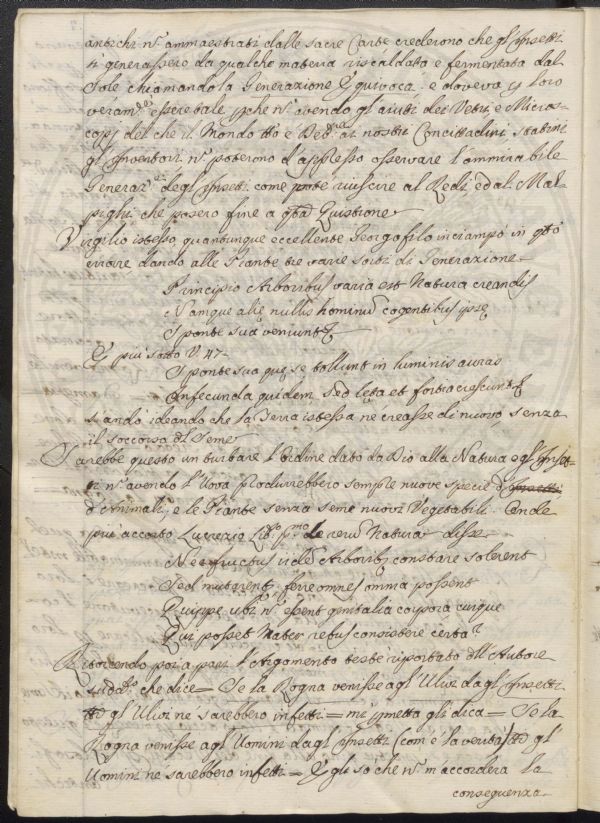 antichi nō ammaestrati dalle sacre Carte crederono che gl'Insetti
si generassero da qualche materia riscaldata e fermentata dal
Sole chiamandola Generazione Equivoca. e doveva p loro
veram.te essere tale pche nō avendo gl'aiuti dei Vetri, e Micros-
copj del che il Mondo tt̄o è Deb.re ai nostri Concittadini Statini
gl'Inventori nō poterono d'appresso osservare l'ammirabile
Generaz.e degl'Insetti. come potè riuscire al Redi, ed al Mal-
pighi, che posero fine a qta Quistione
Virgilio istesso, quantunque eccellente Georgofilo inciampò in qto
errore dando alle Piante tre varie sorti di Generazione =
Principio Arboribus varia est Natura creandis
Namque alię nullis hominū cogentibus ipsę
Sponte sua veniunt &
E più sotto V. 47.
Sponte sua quę se tollunt in luminis auras
Infecunda quidem, sed lęta et fortia crescunt &
s'andò ideando che la Terra istessa ne creasse di nuovo, senza
il soccorso di Seme
Sarebbe questo un turbare l'Ordine dato da Dio alla Natura e gl'Inset-
ti nō avendo l'Uova produrrebbero sempre nuove specie d'Insetti
d'Animali, e le Piante senza seme nuovi Vegetabili. Onde
più accorto Lucrezio Lib.o p.mo de rerū Natura disse
Nec fructus iidē Arboribʒ constare solerent
Sed mutarent, ferre omnes omnia possent
Quippe ubi nō essent genitalia corpora cuique
Qui posset Mater rebus consistere certa?
Ritorcendo poi a pari l'Argomento testè riportato dll'Autore
sudd.o che dice = Se la Rogna venisse agl'Ulivi dagl'Insetti
tt̄i gl'Ulivi ne sarebbero infetti = mi pmetta gli dica = Se la
Rogna venisse agl'Uomini dagl'Insetti (com'è la verità) tt̄i gl'
Uomini ne sarebbero infetti = E gli so che nō m'accorderà la
conseguenza.